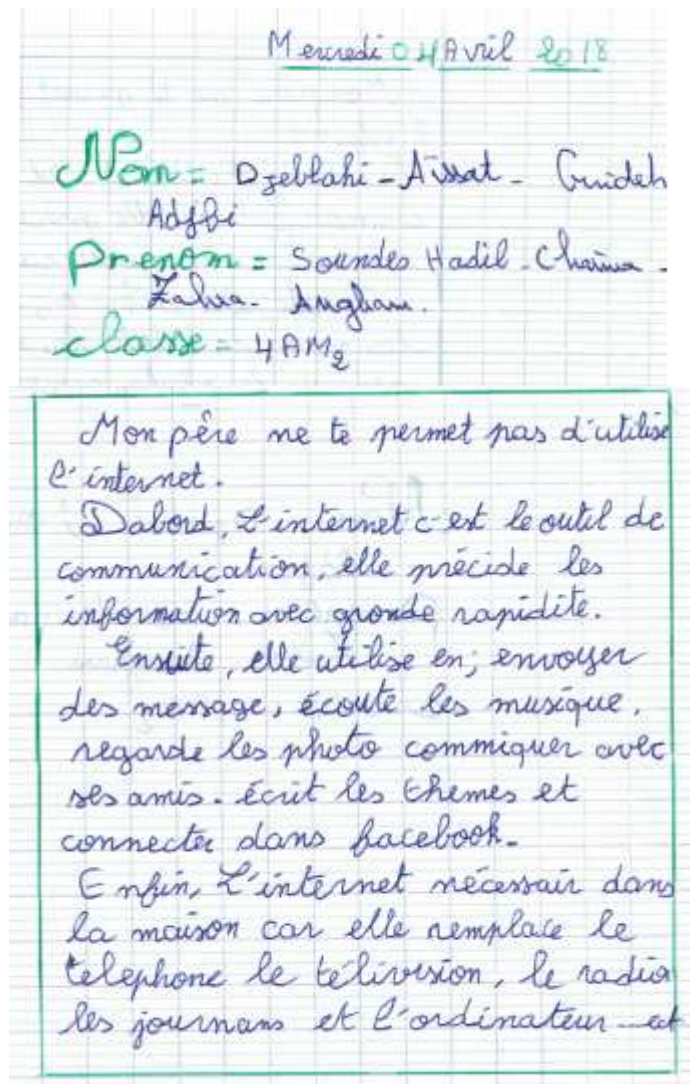 Mercredi 04 Avril 2018
Nom = Djeblahi - Aïssat - Guideh
Adjbi
Prenom = Soundes Hadil - Chaima -
Zahra - Angham.
classe = 4AM2
Mon père ne te permet pas d'utilise
l'internet.
Dabord, L'internet c'est le outil de
communication, elle précide les
information avec grande rapidite.
Ensuite, elle utilise en; envoyer
des message, écoute les musique,
regarde les photo commiquer avec
ses amis. écrit les thémes et
connecter dans facebook.
Enfin, L'internet nécessair dans
la maison car elle remplace le
telephone le télivision, le radio
les journans et l'ordinateur et